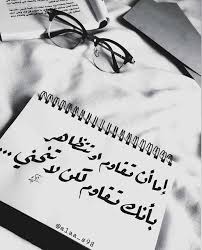 إما أن تقاوم او تتظاهر
بأنك تقاوم لكن لا تنحني ...
@alaa_s98